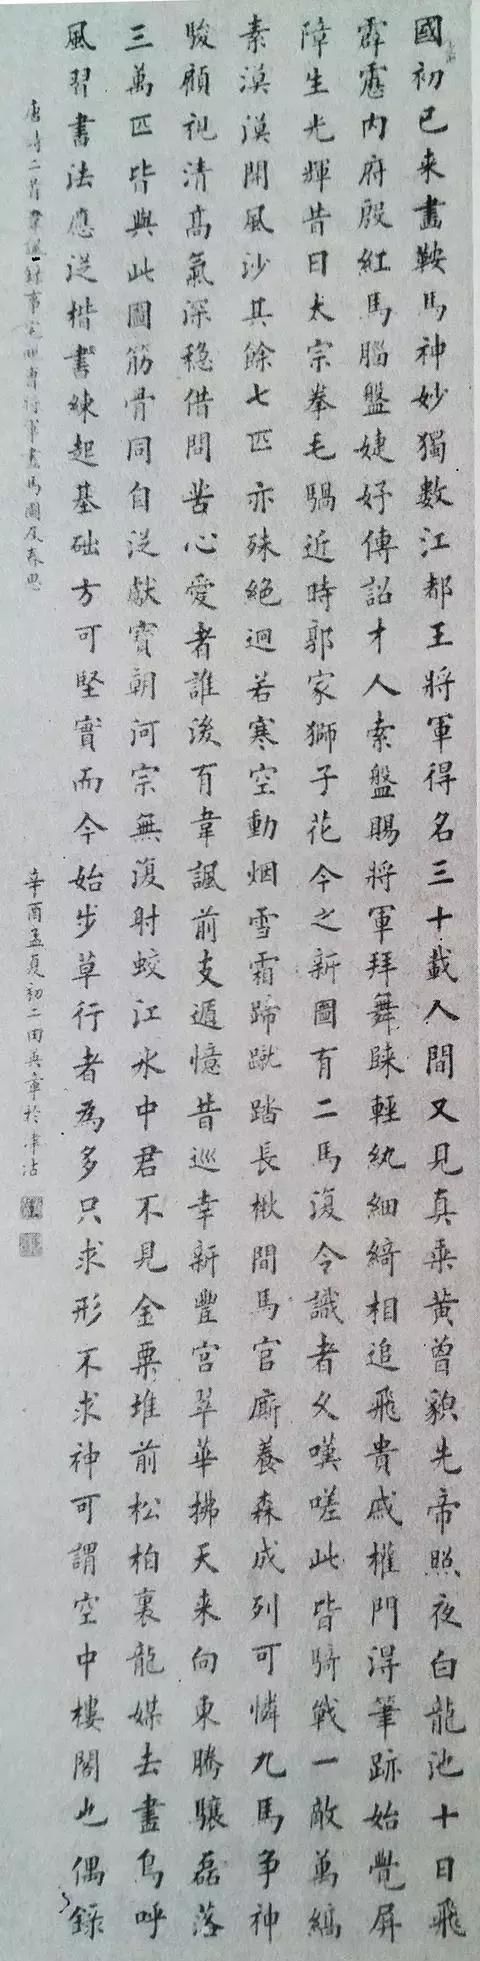 國初已来畫鞍馬神妙獨數江都王將軍得名三十載人間又見真乘黄曾貌先帝照夜白龍池十日飛
霹靂内府殷紅馬腦盤婕妤傳詔才人索盤賜將軍拜舞歸輕紈細綺相追飛貴戚權門得筆跡始覺屏
障生光輝昔日太宗拳毛騧近時郭家獅子花今之新圖有二馬復令識者久嘆嗟此皆騎戰一敵萬縞
素漠漠開風沙其餘七匹亦殊絶迥若寒空動烟雪霜蹄蹴踏長楸間馬官廝養森成列可憐九馬争神
駿顧視清高氣深穩借問苦心愛者誰後有韋諷前支遁憶昔巡幸新豐宮翠華拂天来向東騰驤磊落
三萬匹皆與此圖筋骨同自從獻寶朝河宗無復射蛟江水中君不見金粟堆前松柏裏龍媒去盡鳥呼
風習書法應從楷書練起基础方可堅實而今始步草行者為多只求形不求神可謂空中樓閣也偶録
唐詩二首韋諷録事宅觀曹将軍畫馬圖及春思
辛酉孟夏初二田英章於津沽